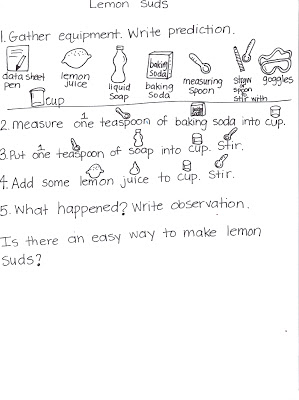 Lemon Suds
1. Gather equipment. Write prediction.
data sheet pen
lemon juice
liquid soap
baking soda
baking soda
measuring spoon
straw or spoon stir with
goggles
cup
2. measure one teaspoon of baking soda into cup.
1
3. Put one teaspoon of soap into cup. Stir.
1
4. Add some lemon juice to cup. Stir.
5. What happened? Write observation.
Is there an easy way to make lemon
suds?